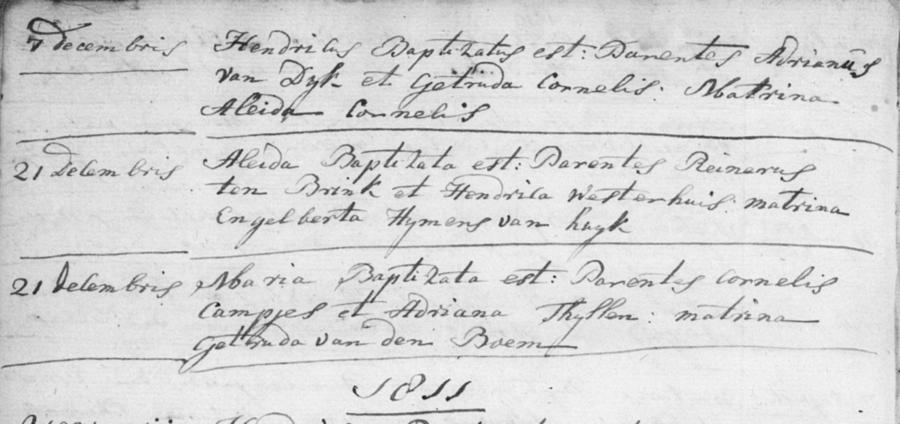 7 decembris Hendricus Baptizatus est: Parentes Adrianus
van Dyk et Getruda Cornelis: Matrina
Aleida Cornelis
21 decembris Aleida Baptizata est: Parentes Reinerus
ten Brink et Hendrica Westerhuis: matrina
Engelberta Hymens van huyk
21 decembris Maria Baptizata est: Parentes Cornelis
Campjes et Adriana Thyssen: matrina
Getruda van den Boem
1811